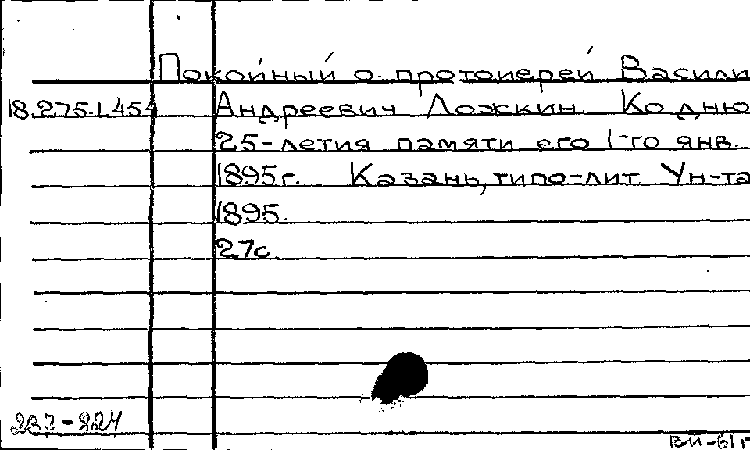 Покойный о. протоиерей Васили
18.275.1.454 Андреевич Ложкин. Ко дню
25-летия памяти его 1-го янв.
1895г. Казань, типо-лит. Ун-та
1895.
27с.
ВИ-61г